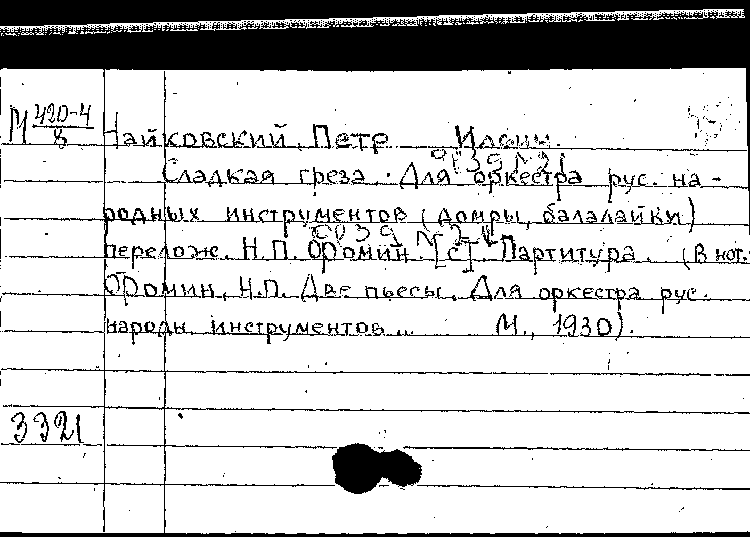 М 420-4/8
Чайковский, Петр Ильич.
Сладкая греза. Для оркестра рус. на-
родных инструментов (домры, балалайки)
перелож. Н.П. Фомин. [С]. Партитура. (В нот.:
Фомин, Н.П. Две пьесы. Для оркестра рус.
народн. инструментов... М., 1930).
3321